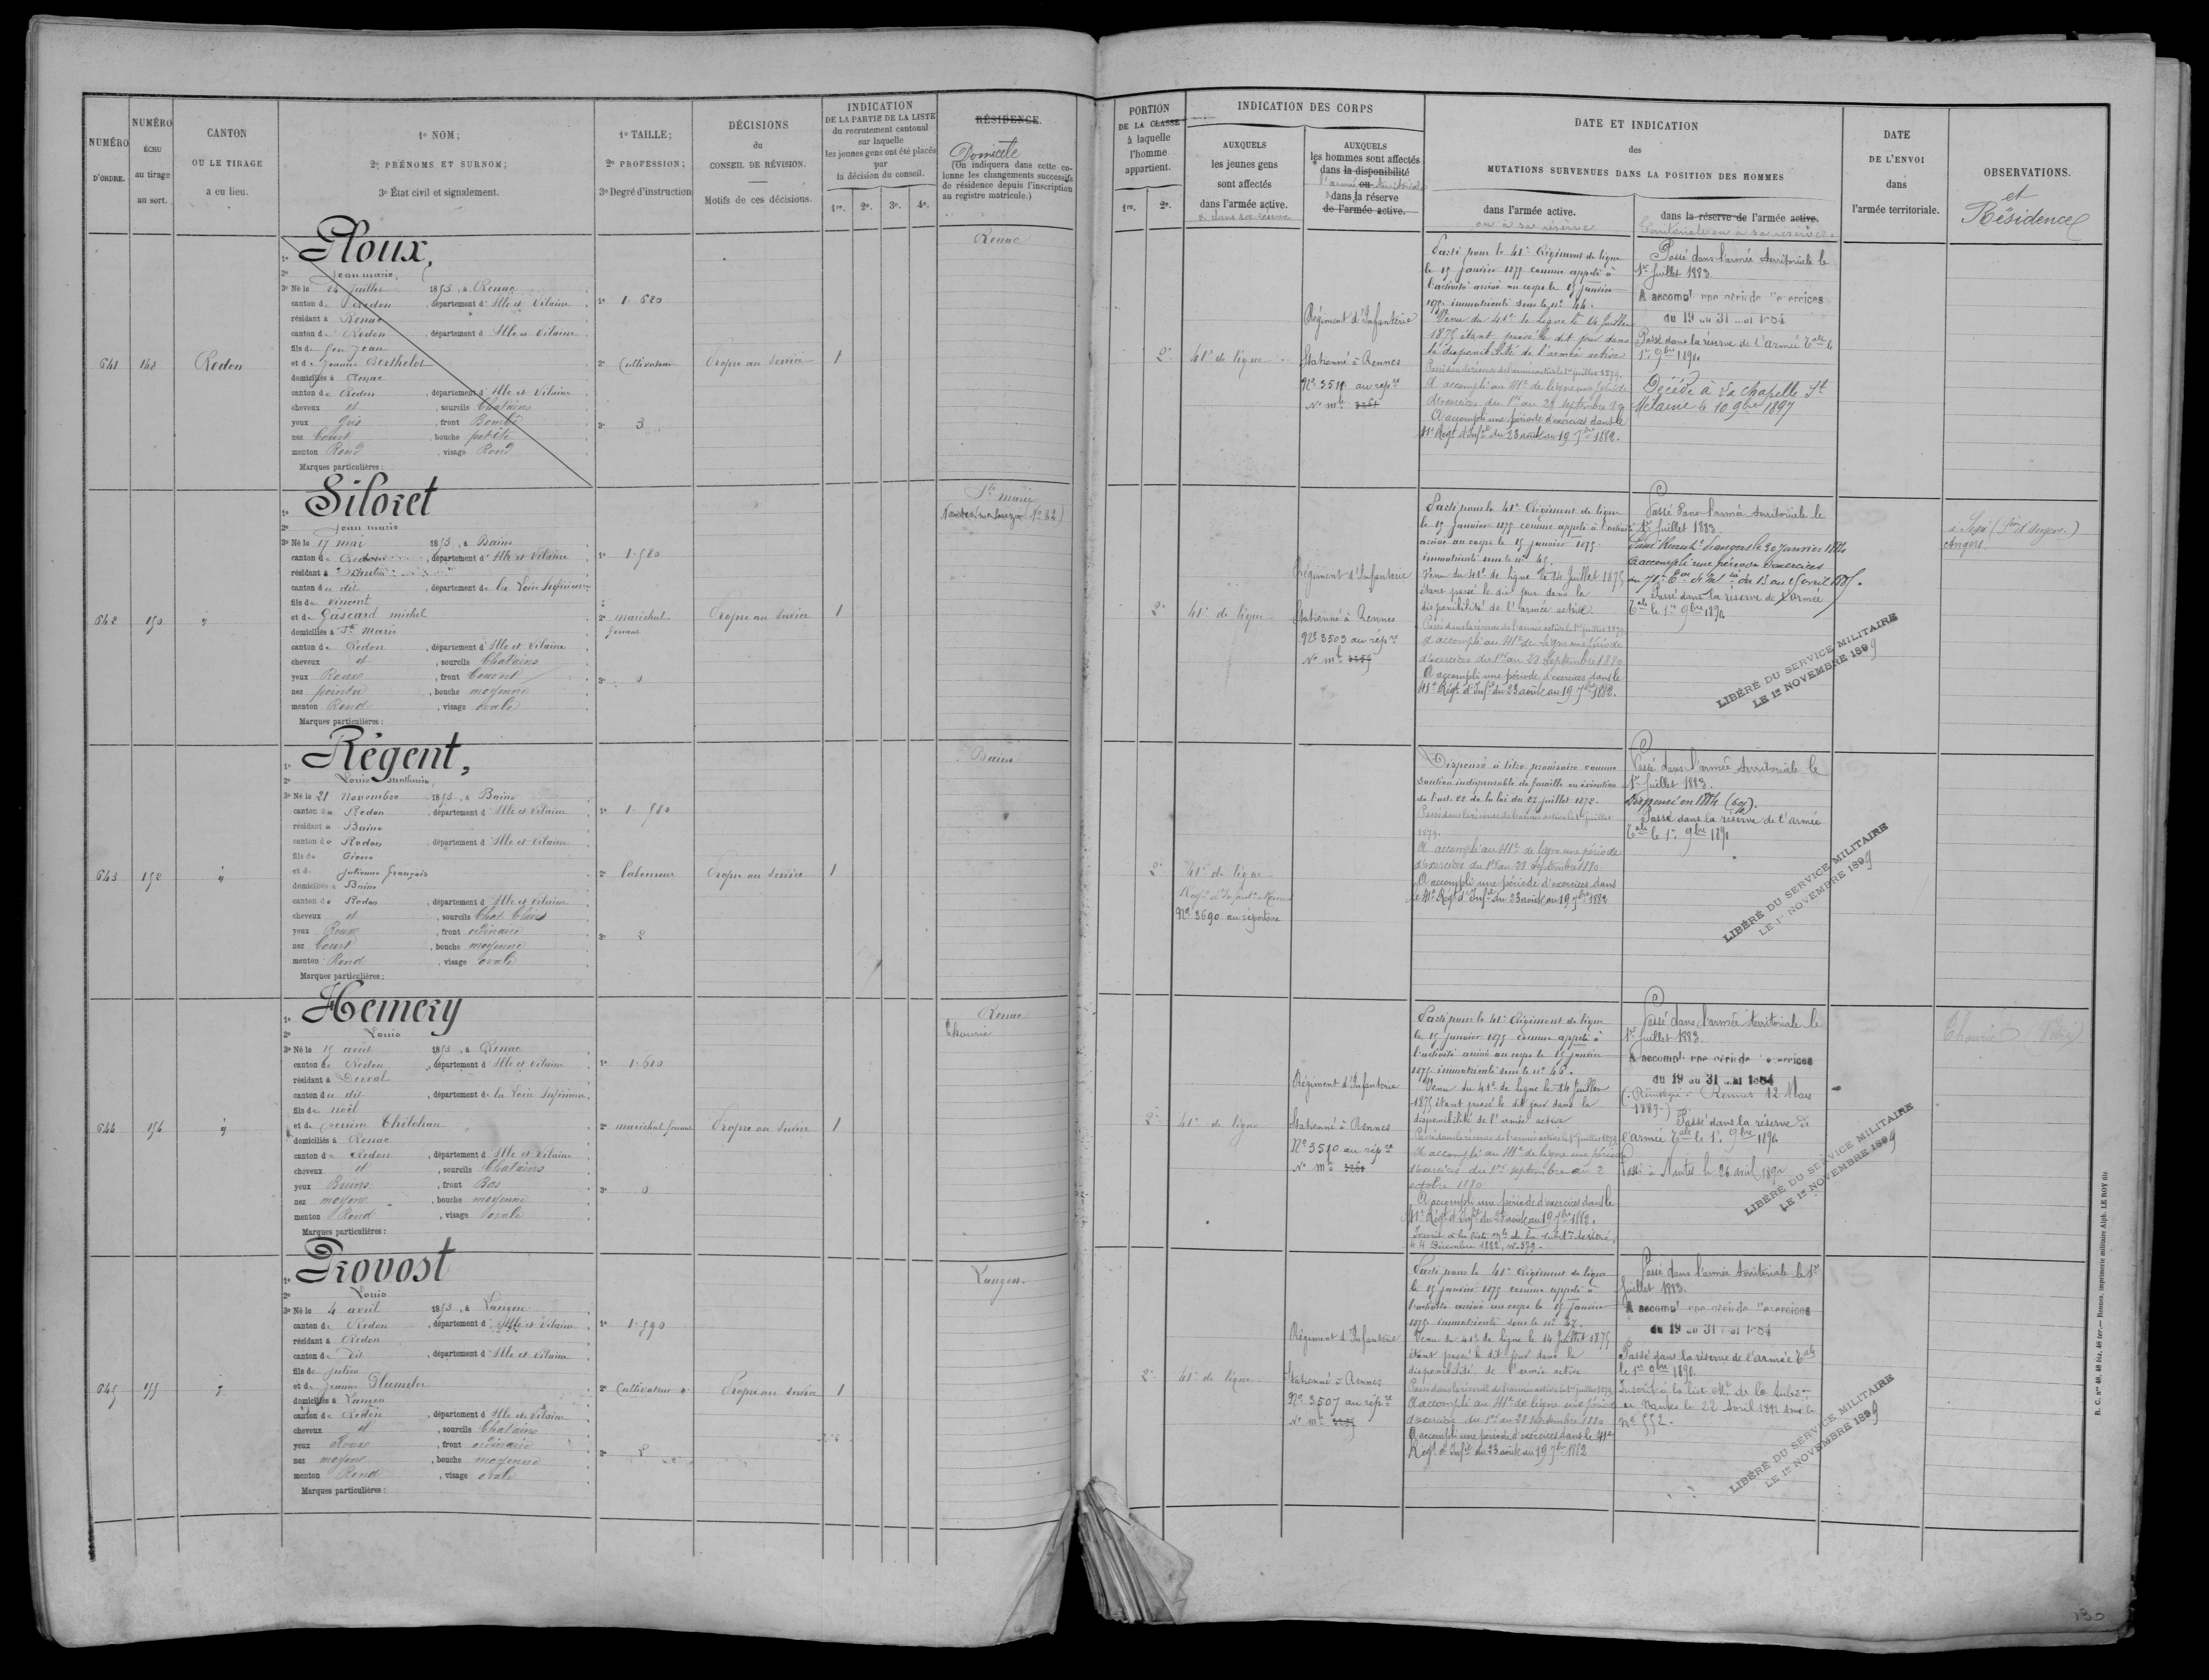 NUMÉRO
D'ORDRE.
NUMÉRO
ÉCHU
au tirage
au sort.
CANTON
OU LE TIRAGE
a eu lieu.
1º NOM;
2º PRÉNOMS ET SURNOM;
3º État civil et signalement.
1º TAILLE;
2º PROFESSION;
3º Degré d'instruction
DÉCISIONS
du
CONSEIL DE RÉVISION.
Motifs de ces décisions.
INDICATION
DE LA PARTIE DE LA LISTE
du recrutement cantonal
sur laquelle
les jeunes gens ont été placés
par
la décision du conseil.
1re. 2e. 3e. 4e.
RÉSIDENCE.
Domicile
(On indiquera dans cette co-
lonne les changements successifs
de résidence depuis l'inscription
au registre matricule.)
PORTION
DE LA CLASSE
à laquelle
l'homme
appartient.
1re. 2e.
INDICATION DES CORPS
AUXQUELS
les jeunes gens
sont affectés
dans l'armée active.
& dans sa réserve
AUXQUELS
les hommes sont affectés
dans la disponibilité
l'armée ou territoriale
dans la réserve
de l'armée active.
DATE ET INDICATION
des
MUTATIONS SURVENUES DANS LA POSITION DES HOMMES
dans l'armée active.
ou à sa réserve
dans la réserve de l'armée active.
territoriale ou à sa réserve
DATE
DE L'ENVOI
dans
l'armée territoriale.
OBSERVATIONS.
et
Résidence
641 148 Redon
1º Ploux,
2º Jean marie,
3º Né le 24 juillet 1853, à Renac
canton de Redon, département d'Ille et Vilaine
résidant à Renac
canton de Redon, département d'Ille et Vilaine
fils de feu Jean
et de Jeanne Berthelot
domiciliés à Renac
canton de Redon, département d'Ille et Vilaine
cheveux et, sourcils Chatains
yeux Gris, front Bombé
nez Court, bouche petite
menton Rond, visage Rond
Marques particulières:
1º 1.680
2º Cultivateur
3º 3
Propre au Service 1
Renac
2e 41e de ligne
Régiment d'Infanterie
Stationné à Rennes
Nº 3511 au repre
Nº mle 3261
Parti pour le 41e Régiment de ligne
le 15 janvier 1875 comme appelé à
l'activité arrivé au corps le 15 janvier
1875 immatriculé sous le nº 44.
Venu du 41e de Ligne le 14 Juillet
1875 étant passé le dit jour dans
la disponibilité de l'armée active
Passé dans la réserve de l'armée active le 1er juillet 1879.
A accompli au 41e de ligne une période
d'exercices du 1er au 28 septembre 80
A accompli une période d'exercices dans le
41e Régt d'Infie du 23 août au 19 7bre 1882.
Passé dans l'armée territoriale le
1er Juillet 1883.
A accompli une période d'exercices
du 19 au 31 mai 1884
Passé dans la réserve de l'Armée Tale le
1er 9bre 1890
Décédé à La Chapelle St
Melaine le 10 9bre 1897
642 150 "
1º Siloret
2º Jean marie
3º Né le 17 mai 1853, à Bains
canton de Redon, département d'Ille et Vilaine
résidant à Nantes
canton du dit, département de la Loire Inférieure
fils de Vincent
et de Gascard michel
domiciliés à Ste Marie
canton de Redon, département d'Ille et Vilaine
cheveux et, sourcils Chatains
yeux Roux, front Couvert
nez pointu, bouche moyenne
menton Rond, visage ovale
Marques particulières:
1º 1.580
2º marechal
ferrant
3º 0
Propre au Service 1
Ste marie
2e 41e de ligne
Régiment d'Infanterie
Stationné à Rennes
Nº 3503 au repre
Nº mle
Parti pour le 41e Régiment de ligne
le 15 janvier 1875 comme appelé à l'activité
arrivé au corps le 15 janvier 1875
immatriculé sous le nº 45.
Venu du 41e de Ligne le 14 Juillet 1875
étant passé le dit jour dans la
disponibilité de l'armée active
Passé dans la réserve de l'armée active le 1er juillet 1879
A accompli au 41e de ligne une période
d'exercices du 1er au 28 Septembre 1880
A accompli une période d'exercices dans le
41e Régt d'Infie du 23 août au 19 7bre 1882.
Passé dans l'armée territoriale le
1er Juillet 1883
Passé Recrutt d'angers le 30 Janvier 1884
A accompli une période d'exercices
au 71e du 13 au 25 avril 1885.
Passé dans la réserve de l'armée
Tale le 1er 9bre 1890
LIBÉRÉ DU SERVICE MILITAIRE
LE 1er NOVEMBRE 1899
Angers
643 152 "
1º Régent,
2º Louis mathurin
3º Né le 21 novembre 1853, à Bains
canton de Redon, département d'Ille et Vilaine
résidant à Bains
canton de Redon, département d'Ille et Vilaine
fils de Pierre
et de Julienne François
domiciliés à Bains
canton de Redon, département d'Ille et Vilaine
cheveux et, sourcils Chat. Clairs
yeux Roux, front ordinaire
nez Court, bouche moyenne
menton Rond, visage ovale
Marques particulières:
1º 1.580
2º laboureur
3º 2
Propre au Service 1
Bains
2e 41e de ligne
Regt d'Infant. à Rennes
Nº 3690 au répertoire
Dispensé à titre provisoire comme
soutien indispensable de famille en exécution
de l'art. 22 de la loi du 27 juillet 1872.
Passé dans la réserve de l'armée active le 1er juillet
1879.
A accompli au 41e de ligne une période
d'exercices du 1er au 28 Septembre 1880.
A accompli une période d'exercices dans
le 41e Régt d'Infie du 23 août au 19 7bre 1882
Passé dans l'armée territoriale le
1er Juillet 1883.
Dispensé en 1884
Passé dans la réserve de l'armée
Tale le 1er 9bre 1890
LIBÉRÉ DU SERVICE MILITAIRE
LE 1er NOVEMBRE 1899
644 154 "
1º Hemery
2º Louis
3º Né le 15 août 1853, à Renac
canton de Redon, département d'Ille et Vilaine
résidant à Derval
canton du dit, département de la Loire Inférieure
fils de noël
et de Perrine Thétchan
domiciliés à Renac
canton de Redon, département d'Ille et Vilaine
cheveux et, sourcils Chatains
yeux Bruns, front Bas
nez moyen, bouche moyenne
menton Rond, visage ovale
Marques particulières:
1º 1.610
2º marechal ferrant
3º 0
Propre au Service 1
Renac
Thourie
2e 41e de ligne
Régiment d'Infanterie
Stationné à Rennes
Nº 3510 au repre
Nº mle 3260
Parti pour le 41e Régiment de ligne
le 15 janvier 1875 comme appelé à
l'activité arrivé au corps le 15 janvier
1875 immatriculé sous le nº 46.
Venu du 41e de Ligne le 14 Juillet
1875 étant passé le dit jour dans la
disponibilité de l'armée active
Passé dans la réserve de l'armée active le 1er juillet 1879
A accompli au 41e de ligne une période
d'exercices du 1er septembre au 2
octobre 1880
A accompli une période d'exercices dans le
41e Régt d'Infie du 23 août au 19 7bre 1882.
Inscrit à la liste mle de la subdon de Vitré,
le 4 Décembre 1882, nº 379.
Passé dans l'armée territoriale le
1er Juillet 1883
A accompli une période d'exercices
du 19 au 31 mai 1884
(Réintégré - Rennes 12 Mars
1889.) Passé dans la réserve de
l'armée Tale le 1er 9bre 1890
Passé à Nantes le 26 avril 1892
LIBÉRÉ DU SERVICE MILITAIRE
LE 1er NOVEMBRE 1899
Thourie (Vitré)
645 155 "
1º Provost
2º Louis
3º Né le 4 avril 1853, à Langon
canton de Redon, département d'Ille et Vilaine
résidant à Redon
canton de dit, département d'Ille et Vilaine
fils de Julien
et de Jeanne Plumeler
domiciliés à Langon
canton de Redon, département d'Ille et Vilaine
cheveux et, sourcils Chatains
yeux Roux, front ordinaire
nez moyen, bouche moyenne
menton Rond, visage ovale
Marques particulières:
1º 1.590
2º Cultivateur
3º 2
Propre au Service 1
Langon.
2e 41e de ligne
Régiment d'Infanterie
Stationné à Rennes
Nº 3507 au repre
Nº mle
Parti pour le 41e Régiment de ligne
le 15 janvier 1875 comme appelé à
l'activité arrivé au corps le 15 janvier
1875 immatriculé sous le nº 47.
Venu du 41e de Ligne le 14 Juillet 1875
étant passé le dit jour dans la
disponibilité de l'armée active
Passé dans la réserve de l'armée active le 1er juillet 1879
A accompli au 41e de ligne une période
d'exercices du 1er au 28 septembre 1880
A accompli une période d'exercices dans le 41e
Régt d'Infie du 23 août au 19 7bre 1882
Passé dans l'armée territoriale le 1er
Juillet 1883.
A accompli une période d'exercices
du 19 au 31 mai 1884
Passé dans la réserve de l'armée Tale
le 1er 9bre 1890.
Inscrit à la liste Mle de la Subdon
de Nantes le 22 Avril 1892 sous le
nº 552.
LIBÉRÉ DU SERVICE MILITAIRE
LE 1er NOVEMBRE 1899
R. C. nos 48, 48 bis, 48 ter.— Rennes, imprimerie militaire Alph. LE ROY fils
130